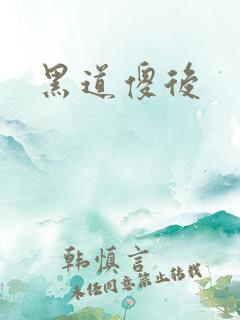 黑道傻後
韩慎言
未经同意禁止转载